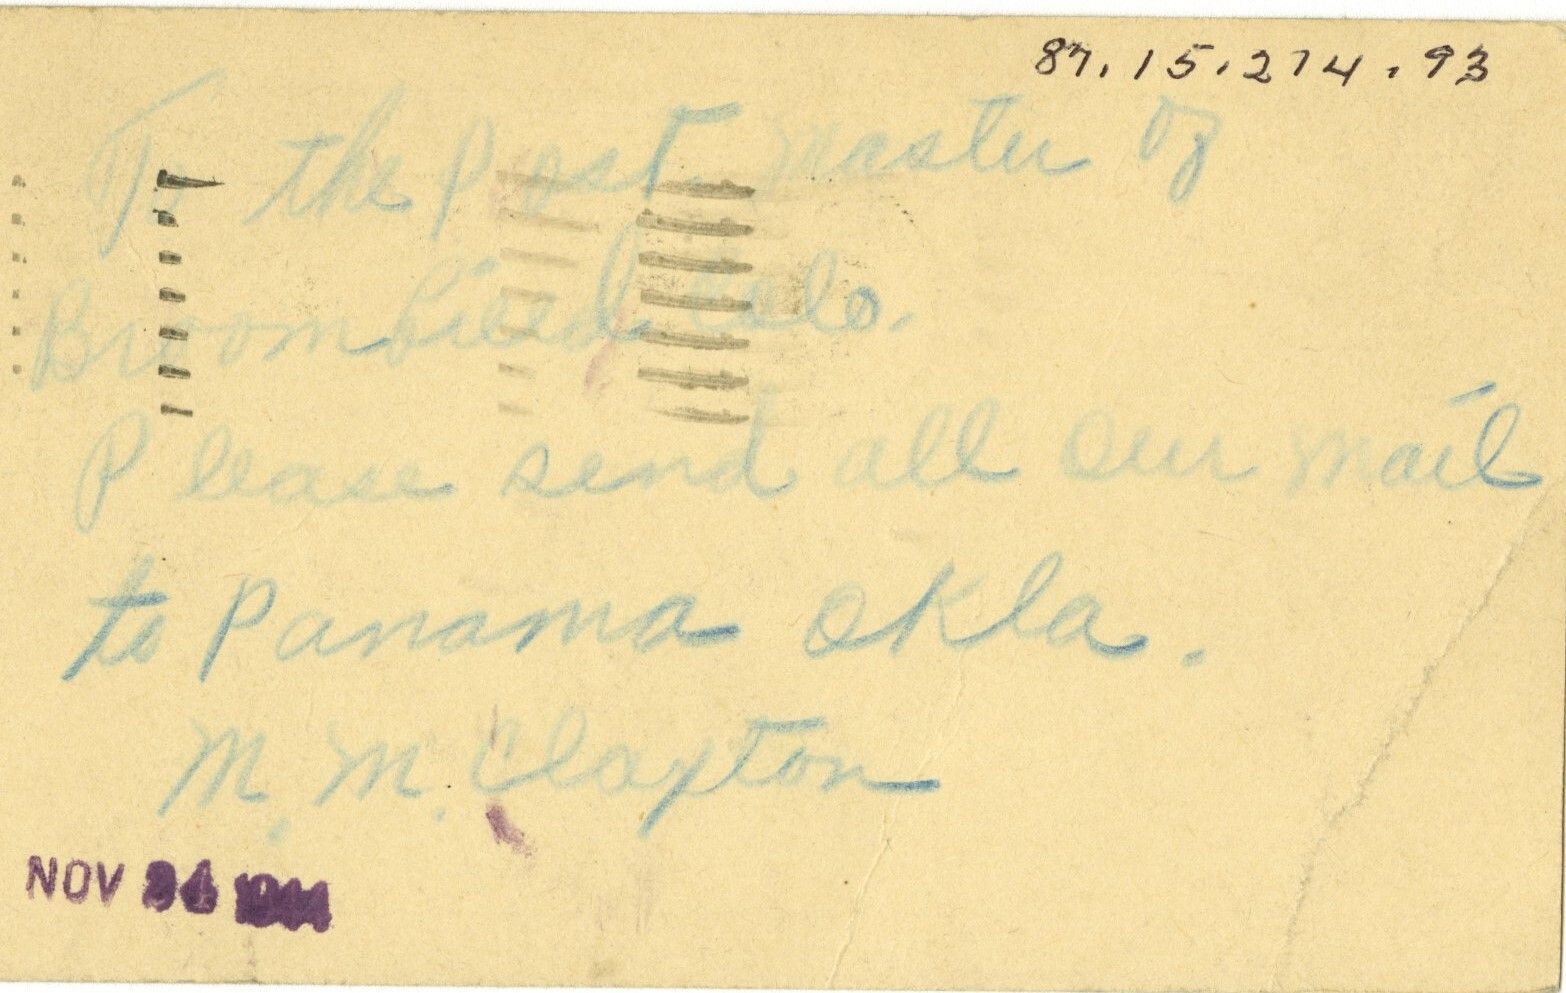 87.15.274.93
To the Post Master of
Broomfield Colo.
Please send all our mail
to Panama Okla.
M. M. Clayton
NOV 24